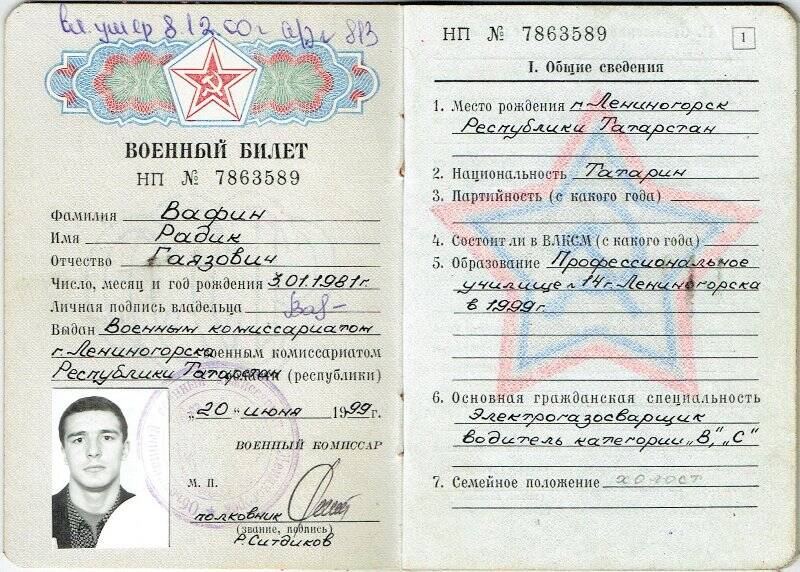 8.12.00г 813
ВОЕННЫЙ БИЛЕТ
НП № 7863589
Фамилия Вафин
Имя Радик
Отчество Гаязович
Число, месяц и год рождения 3.01.1981г.
Личная подпись владельца
Выдан Военным комиссариатом
г. Лениногорска военным комиссариатом
Республики Татарстан области (республики)
„20“ июня 1999г.
ВОЕННЫЙ КОМИССАР
М. П.
полковник
(звание, подпись)
Р.Ситдиков
НП № 7863589
1
I. Общие сведения
1. Место рождения г. Лениногорск
Республики Татарстан
2. Национальность Татарин
3. Партийность (с какого года)
4. Состоит ли в ВЛКСМ (с какого года)
5. Образование Профессиональное
училище №14 г. Лениногорска
в 1999г.
6. Основная гражданская специальность
Электрогазосварщик
водитель категории „В“, „С“
7. Семейное положение холост